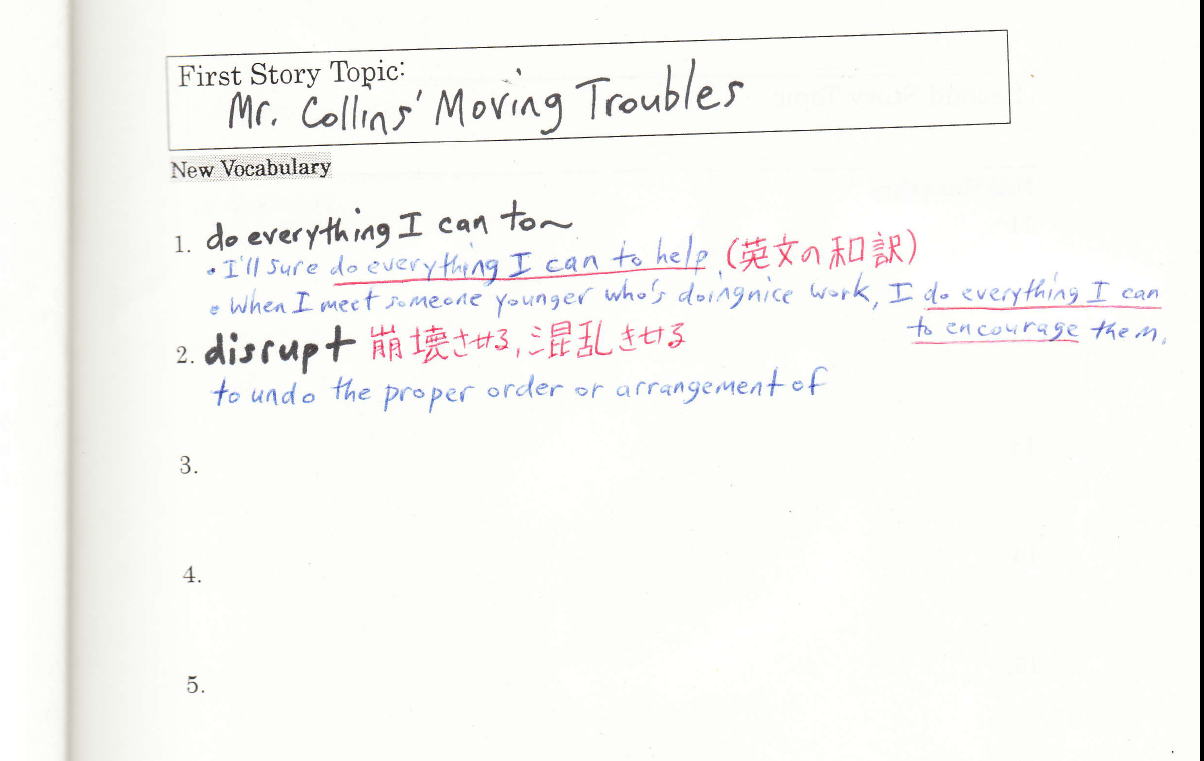 First Story Topic:
Mr. Collins' Moving Troubles
New Vocabulary
1. do everything I can to~
• I'll sure do everything I can to help. (英文の和訳)
• When I meet someone younger who's doing nice work, I do everything I can
to encourage them.
2. disrupt 崩壊させる, 混乱させる
to undo the proper order or arrangement of
3.
4.
5.